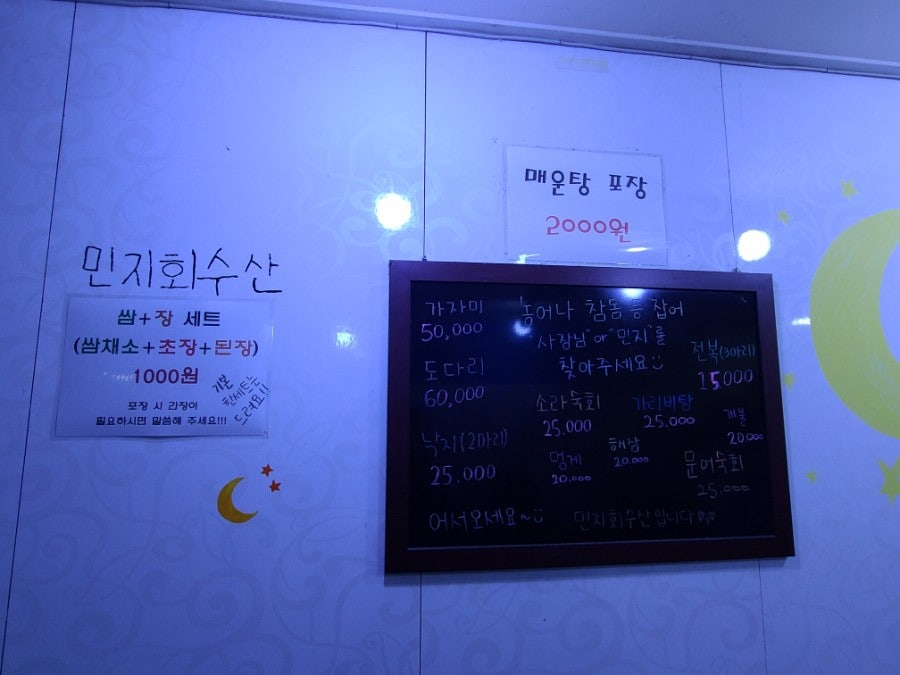 민지회수산
쌈+장 세트
(쌈채소+초장+된장)
1000원
기본
한세트는
드려요!!
포장 시 간장이
필요하시면 말씀해 주세요!!!
매운탕 포장
2000원
가자미
50,000
도다리
60,000
낙지(2마리)
25.000
농어나 참돔 등 잡어
"사장님" or "민지"를
찾아주세요
전복(3마리)
15000
소라숙회
25.000
가리비탕
25.000
개불
20.000
멍게
20.000
해삼
20.000
문어숙회
25.000
어서오세요~
민지회수산입니다